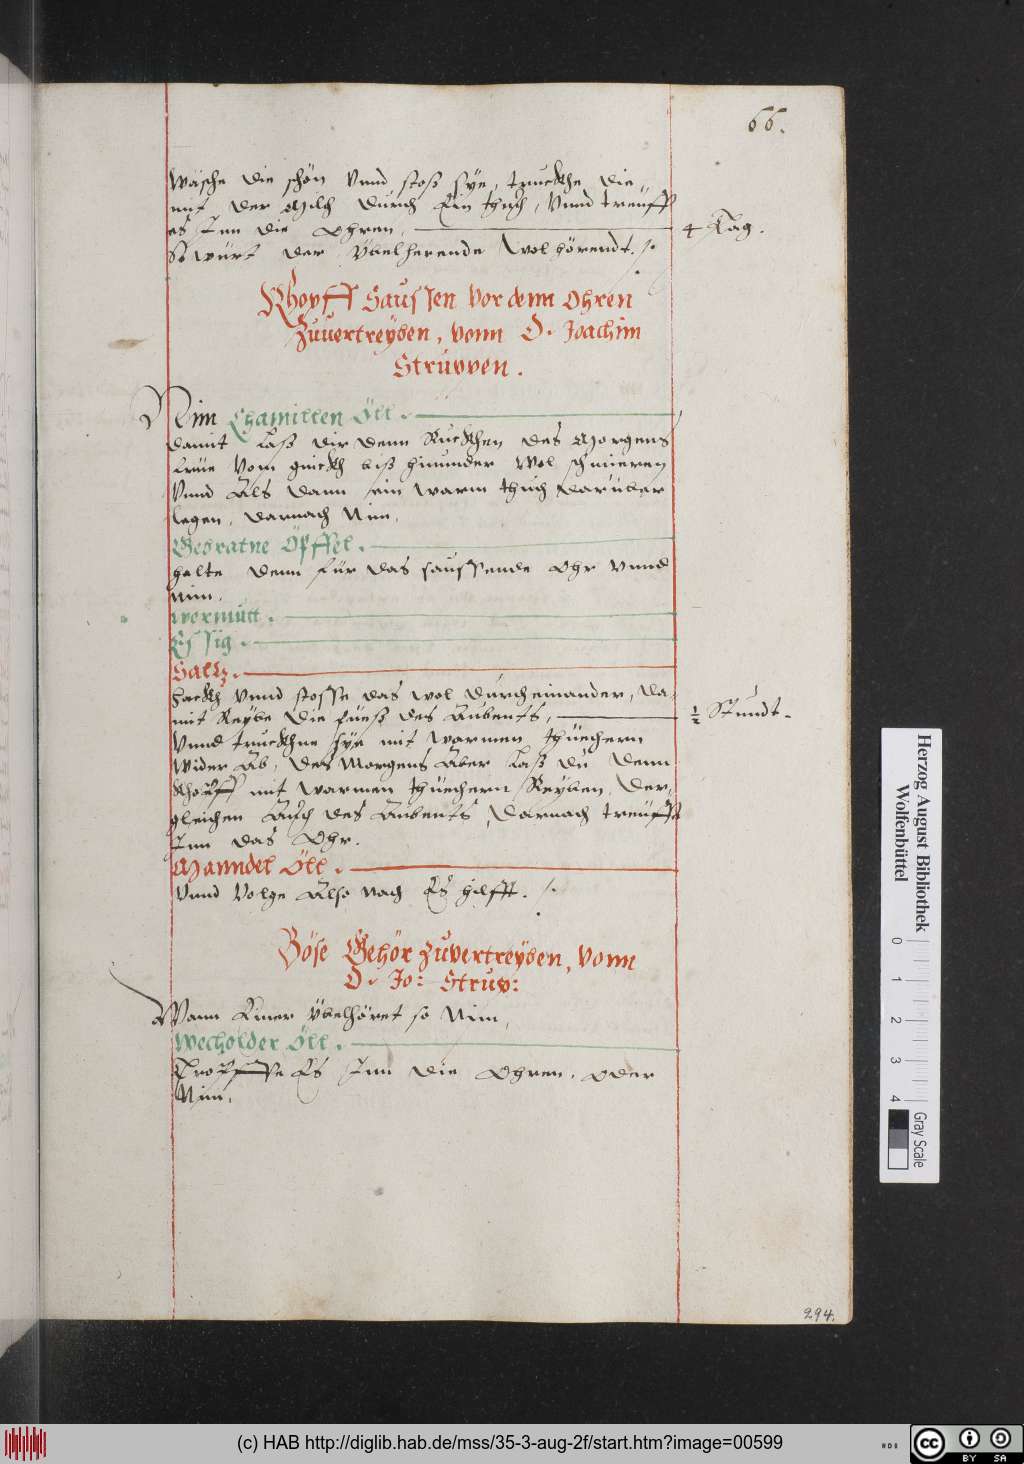 66.
Wäsche die schön Vnnd stoß sÿe, truckhe die
mit der Milch durch Ein thuch, Vnnd treuff
es Inn die Ohren,
4 Tag.
So würt der Übelherende Wol hörendt. /.
Khopff Saussen Vor denn Ohren
Zuuertreÿben, vonn D. Joachim
Struppen.
Nim Chamillen Öll.
damit Laß dir denn Ruckhen des Morgens
frue Vom gnickh biß hinunder Wol schmieren
Vnnd Als dann ein warm thuch darüber
legen, darnach Nim,
Gebratne Öpffel.
halte denn für das saussende Ohr Vnnd
Nim.
Wormutt.
Essig.
Saltz.
Hackh Vnnd stosse das wol durcheinander, da-
mit Reÿbe die füeß des Aubents,
½ Stundt.
Vnnd truckhne sÿe mit warmen thüechern
Wider Ab, des Morgens Aber Laß du denn
Khopff mit warmen thüechern Reÿben, der-
gleichen Auch des Aubents, darnach treuffs
Inn das Ohr.
Manndel Öll.
Vnnd Volge Also Nach Es hilfft. /.
Böse Gehör Zuvertreÿben, vonn
D. Jo: Strup:
Wann Einer Übelhöret so Nim,
Wecholder Öll.
Tropffe Es Inn die Ohren, oder
Nim.
294.
Herzog August Bibliothek
Wolfenbüttel
0 1 2 3 4
Gray Scale
(c) HAB http://diglib.hab.de/mss/35-3-aug-2f/start.htm?image=00599
cc BY SA